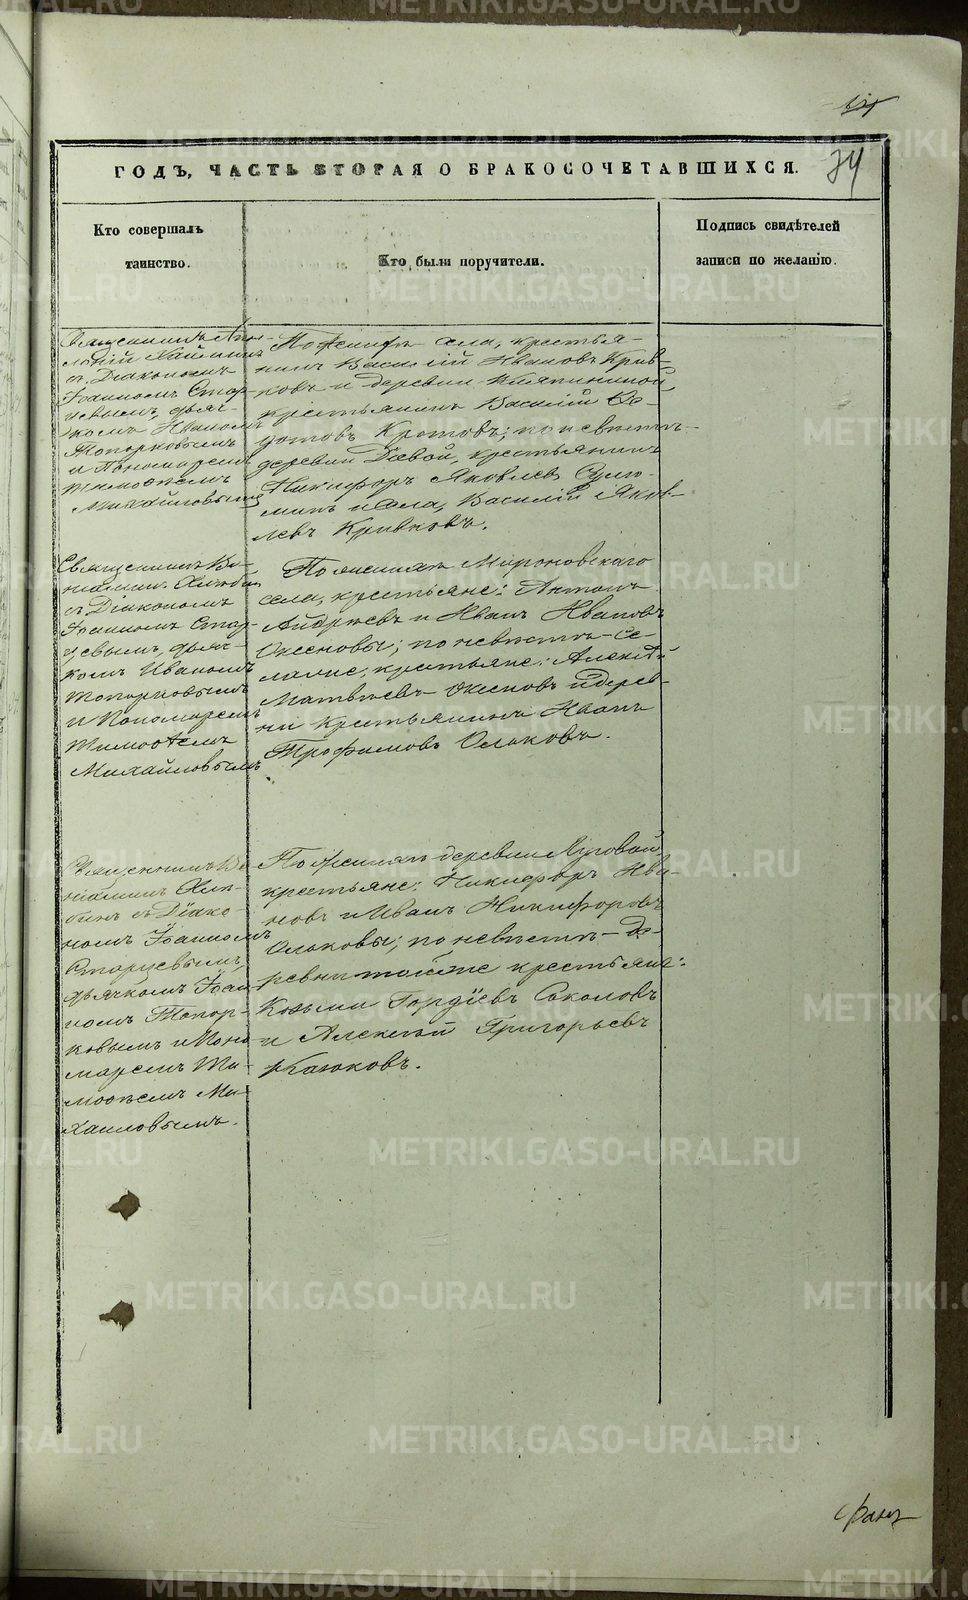 74
ГОДЪ, ЧАСТЬ ВТОРАЯ О БРАКОСОЧЕТАВШИХСЯ.
Кто совершалъ
таинство.
Кто были поручители.
Подпись свидѣтелей
записи по желанію.
съ Діакономъ
Іоанномъ Стар-
цевымъ, дьяч-
комъ Иваномъ
Топорковымъ
и Пономаремъ
Тимоѳеемъ
Михайловымъ
По женихѣ села, крестья-
нинъ Василій Ивановъ Крив-
ковъ и деревни
крестьянинъ Василій Ѳе-
дотовъ Кротовъ; по невѣстѣ-
деревни крестьянинъ
Никифоръ Яковлевъ
и села, Василій Яков-
левъ Кривковъ.
Священникъ Ве-
ніаминъ
съ Діакономъ
Іоанномъ Стар-
цевымъ, дьяч-
комъ Иваномъ
Топорковымъ
и Пономаремъ
Тимоѳеемъ
Михайловымъ
По женихѣ Мироновскаго
села, крестьяне: Антонъ
Андреевъ и Иванъ Ивановъ
Оксеновы; по невѣстѣ-се-
ла крестьяне: Алексѣй
Матвѣевъ Оксеновъ и дерев-
ни крестьянинъ Иванъ
Трофимовъ Ольковъ.
Священникъ Ве-
ніаминъ
съ Діако-
номъ Іоанномъ
Старцевымъ,
дьячкомъ Іоан-
номъ Топор-
ковымъ и Поно-
маремъ Ти-
моѳеемъ Ми-
хаиловымъ.
По женихѣ деревни Луговой
крестьяне: Никифоръ Ива-
новъ и Иванъ Никифоровъ
Ольковы; по невѣстѣ-де-
ревни тойже крестьяне:
Козьма Гордѣевъ Соколовъ
и Алексѣй Григорьевъ
METRIKI.GASO-URAL.RU